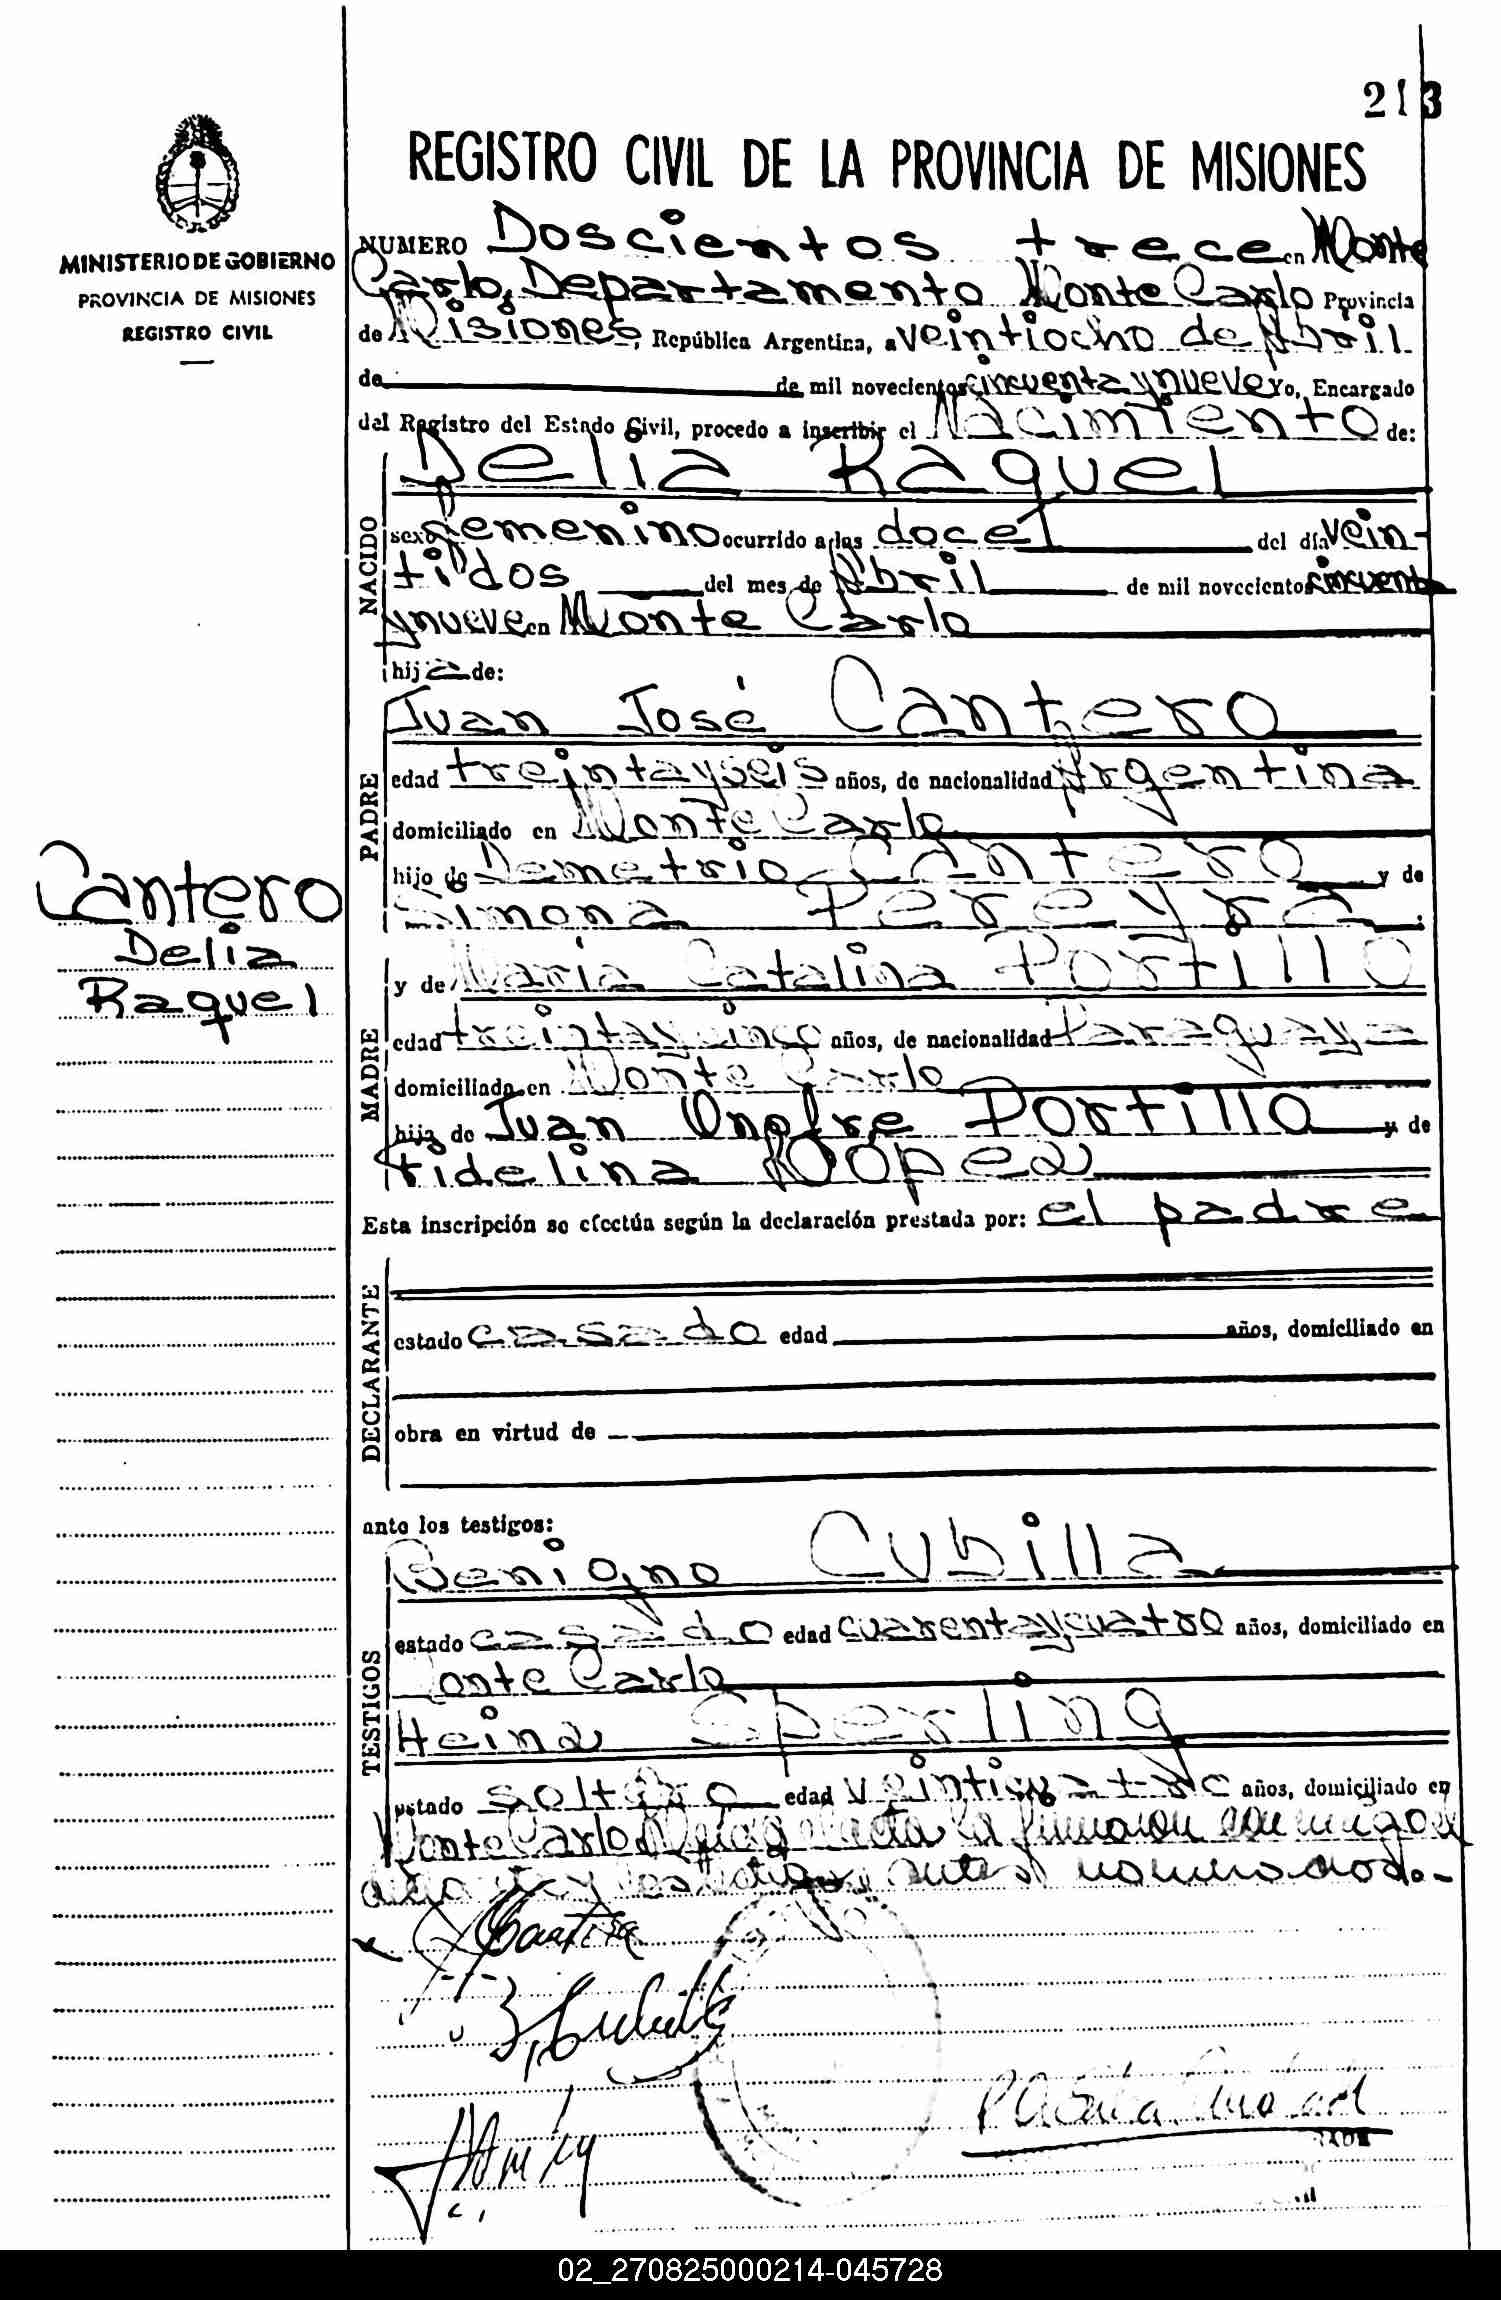 213
REGISTRO CIVIL DE LA PROVINCIA DE MISIONES
MINISTERIO DE GOBIERNO
PROVINCIA DE MISIONES
REGISTRO CIVIL
NUMERO Doscientos trece en Monte
Carlo, Departamento Monte Carlo Provincia
de Misiones, República Argentina, a veintiocho de Abril
de de mil novecientos cincuenta y nueve Yo, Encargado
del Registro del Estado Civil, procedo a inscribir el Nacimiento de:
NACIDO
Delia Raquel
sexo femenino ocurrido a las doce del día vein-
tidos del mes de Abril de mil novecientos cincuenta
y nueve en Monte Carlo
hija de:
PADRE
Juan José Cantero
edad treinta y seis años, de nacionalidad Argentina
domiciliado en Monte Carlo
hijo de Demetrio Cantero y de
Simona Pereyra
Cantero
Delia
Raquel
MADRE
y de María Catalina Portillo
edad treinta y cinco años, de nacionalidad Paraguaya
domiciliada en Monte Carlo
hija de Juan Onofre Portillo y de
Fidelina Lopez
Esta inscripción se efectúa según la declaración prestada por: el padre
DECLARANTE
estado casado edad años, domiciliado en
obra en virtud de
ante los testigos:
TESTIGOS
Benigno Cubilla
estado casado edad cuarenta y cuatro años, domiciliado en
Monte Carlo
Heinz Sperling
estado soltero edad veinticuatro años, domiciliado en
Monte Carlo. acta la firmaron conmigo el
y los testigos antes nombrados.-
B. Cubilla
02_270825000214-045728